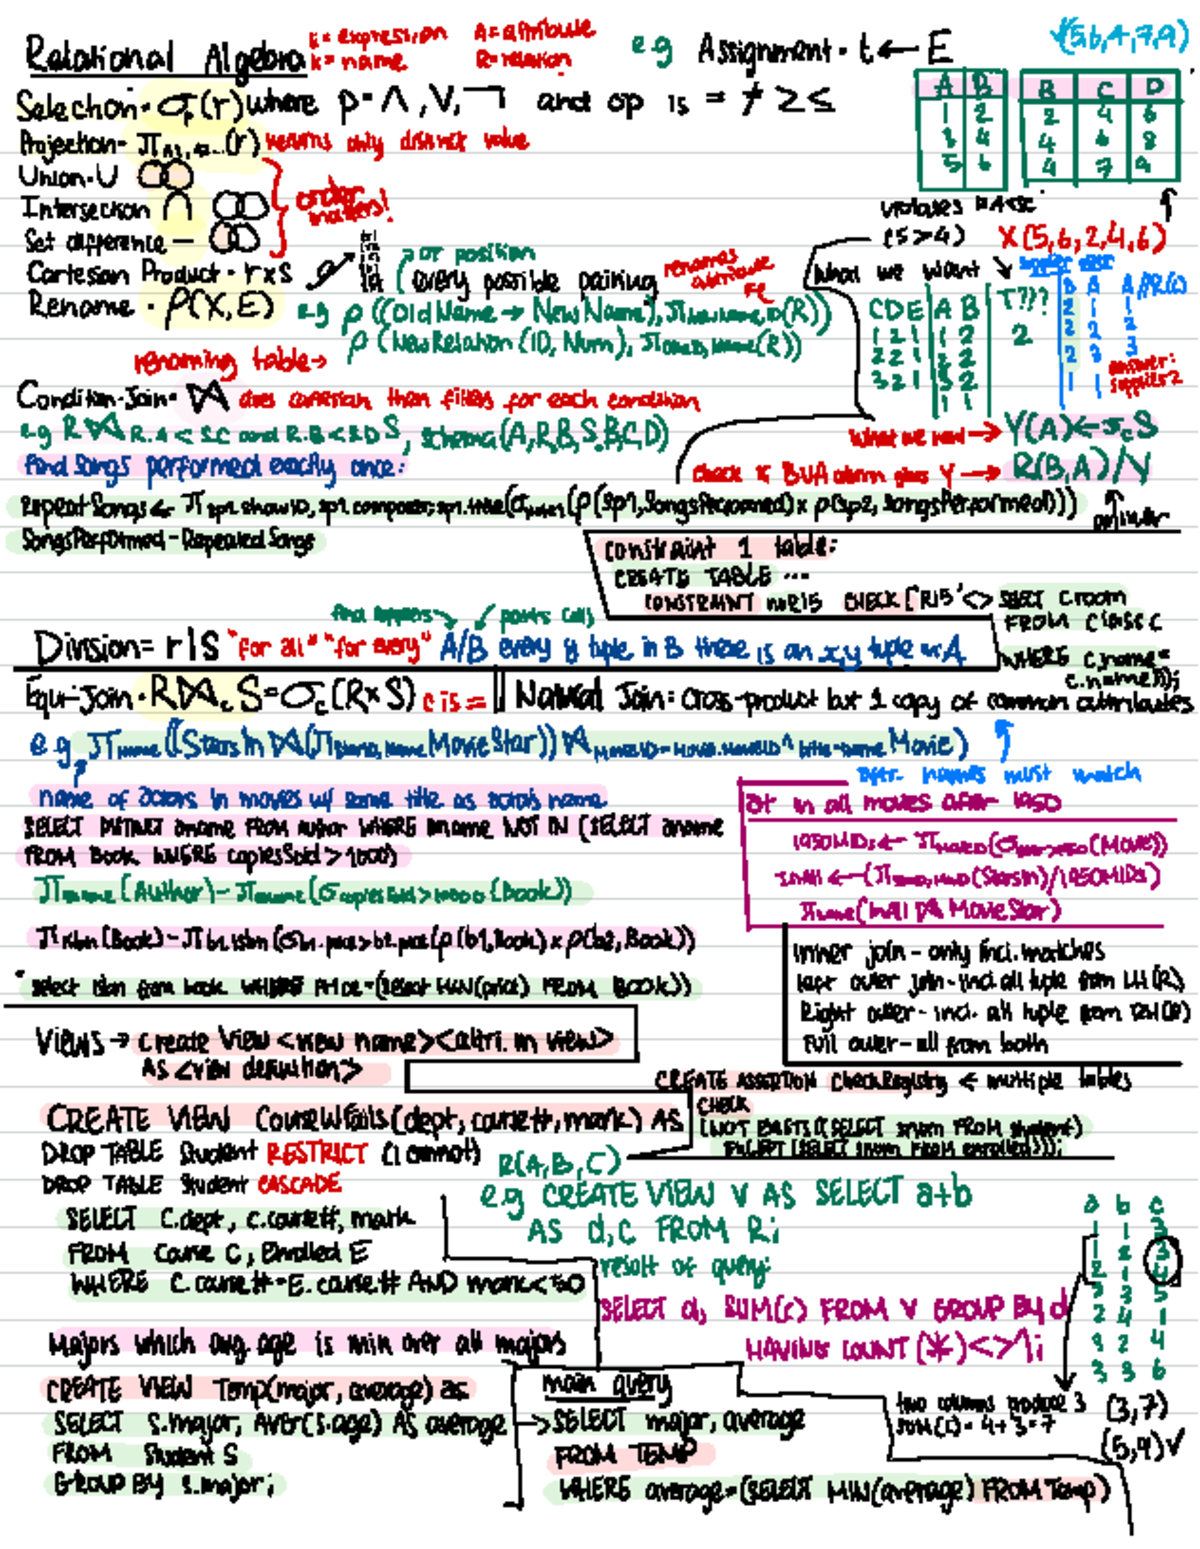 Relational Algebra
E = expression A = attribute
k = name R = relation
e.g Assignment · t ← E
✓(5,6,4,7,9)
Selection · σp(r) where p = ∧, ∨, ¬ and op is = ≠ ≥ ≤
Projection - π A1, A2...(r) returns only distinct value
Union - U
Intersection ∩
Set difference —
order matters!
Cartesian Product · r x S
or position
(every possible pairing
Rename · ρ(X, E)
renames attribute
e.g ρ ((OldName → NewName), π NewName, ID(R))
ρ (NewRelation (ID, Num), π (R))
renaming table →
A B
1 2
3 4
5 6
B C D
2 4 6
4 6 8
4 7 9
(5>4)
X(5,6,2,4,6)
what we want
C D E A B T???
1 2 1 1 2 2
2 2 1 2 2
3 2 1 3 2
1 1
answer:
supplier 2
Condition-Join = ⋈ does cartesian then filters for each condition
e.g R ⋈ R.A < S.C and R.B < S.D S, schema (A, R.B, S.B, C, D)
what we need → Y(A) ← π c S
→ R(B,A)/Y
find songs performed exactly once:
RepeatSongs ← π sp1.showID, sp1.composer, sp1.title(σ (ρ(sp1, SongsPerformed) x ρ(sp2, SongsPerformed)))
SongsPerformed - RepeatedSongs
constraint 1 table:
CREATE TABLE ...
CONSTRAINT noR15 CHECK ('R15' <> SELECT c.room
FROM Class c
WHERE c.name =
c.name));
Division = r|S "for all" "for every" A/B every y tuple in B there is an x,y tuple in A
Equi-Join · R ⋈c S = σc (R x S) c is =
Natural Join: cross-product but 1 copy of common attributes
e.g π name ((StarsIn ⋈ (π MovieStar)) ⋈ MovieID = Movie.MovieID ^ title = name Movie)
attr. names must match
name of actors in movies w/ same title as actors name
SELECT DISTINCT aname FROM Author WHERE aname NOT IN (SELECT aname
FROM Book WHERE copiesSold > 1000)
π aname (Author) - π aname (σ copiesSold > 10000 (Book))
π isbn (Book) - π b1.isbn (σ b1.price > b2.price (ρ(b1, Book) x ρ(b2, Book)))
select isbn from book WHERE Price = (select MIN(price) FROM BOOK))
in all movies after 1950
1950MIDs ← π MovieID (σ (Movie))
inAll ← (π (StarsIn)/1950MIDs)
π name (inAll ⋈ MovieStar)
Inner join - only incl. matches
left outer join - incl all tuple from LH(R)
Right outer - incl. all tuple from RH(R)
Full outer - all from both
Views → Create View <view name> <attri. in view>
AS <view definition>
CREATE ASSERTION CheckRegistry ← multiple tables
CHECK
(NOT EXISTS ((SELECT snum FROM student)
EXCEPT (SELECT snum FROM enrolled)));
CREATE VIEW CourseWFails(dept, course#, mark) AS
DROP TABLE Student RESTRICT (I cannot)
DROP TABLE Student CASCADE
SELECT C.dept, C.course#, mark
FROM Course C, Enrolled E
WHERE C.course# = E.course# AND mark < 50
R(A, B, C)
e.g CREATE VIEW V AS SELECT a+b
AS d, c FROM R;
result of query:
SELECT d, SUM(c) FROM V GROUP BY d
HAVING COUNT(*) <> 1;
a b c
1 1 3
1 2 3
2 1 4
3 3 5
2 4 1
3 2 4
3 3 6
two columns produce 3
SUM(c) = 4+3 = 7
(3,7)
(5,9) ✓
Majors which avg. age is min over all majors
CREATE VIEW Temp(major, average) as
SELECT S.major, Aver(S.age) AS average
FROM Student S
GROUP BY S.major;
main query
SELECT major, average
FROM TEMP
WHERE average = (SELECT MIN(average) FROM Temp)